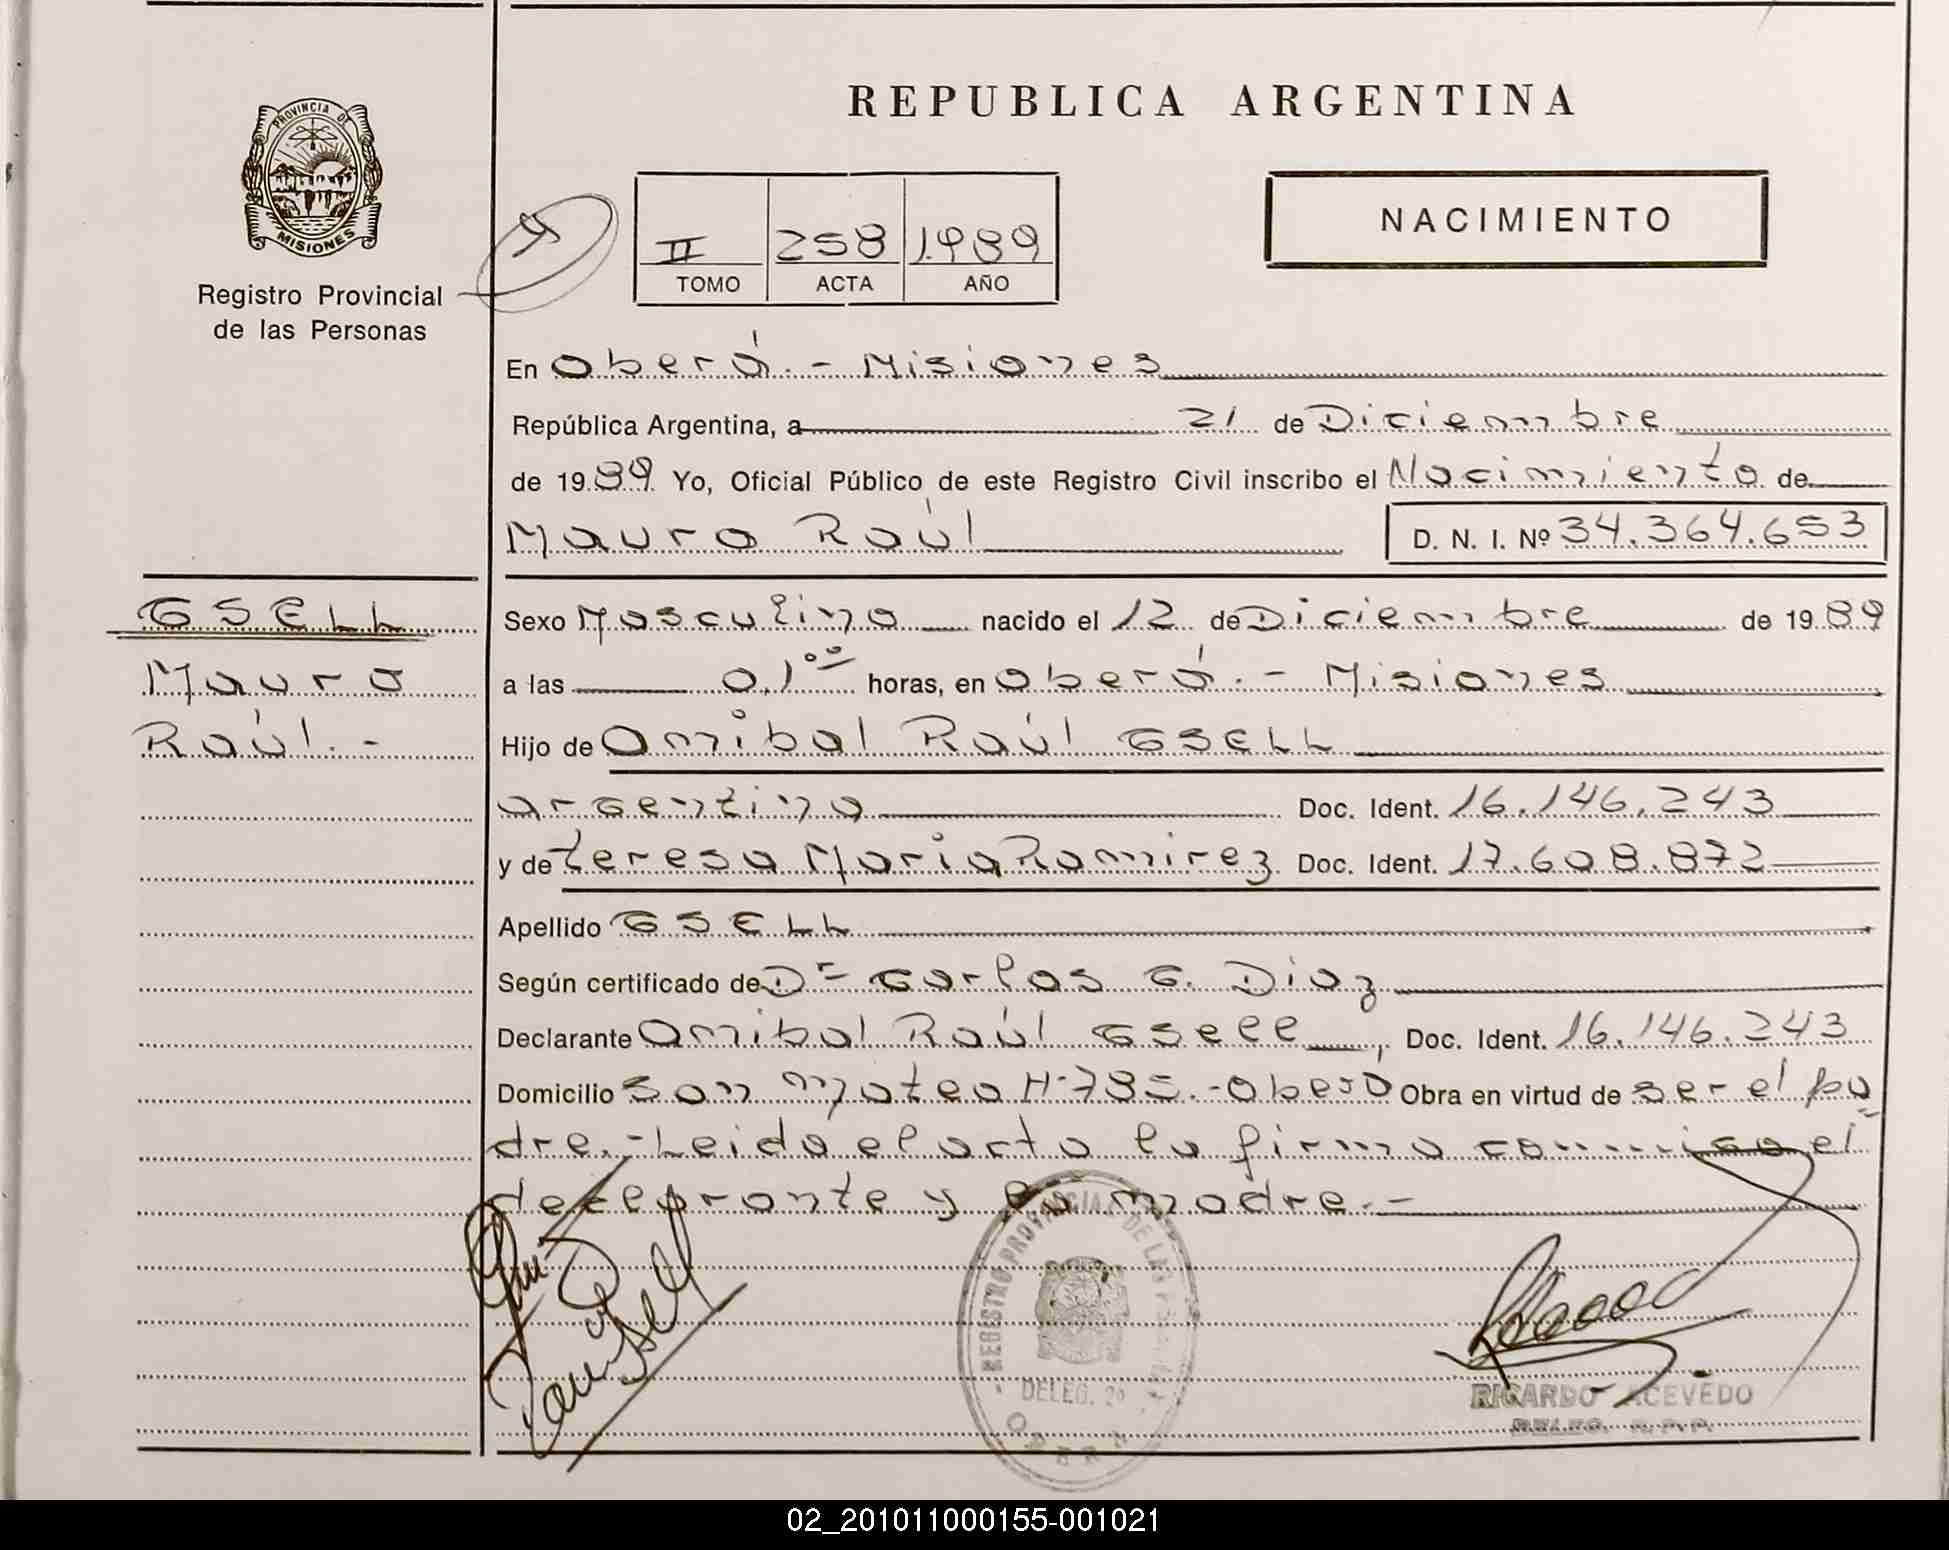 REPUBLICA ARGENTINA
PROVINCIA DE
MISIONES
Registro Provincial
de las Personas
II 258 1989
TOMO ACTA AÑO
NACIMIENTO
En Oberá.- Misiones
República Argentina, a 21 de Diciembre
de 1989 Yo, Oficial Público de este Registro Civil inscribo el Nacimiento de
Mauro Raúl D. N. I. Nº 34.364.653
GSELL
Mauro
Raúl.-
Sexo Masculino nacido el 12 de Diciembre de 1989
a las 0,1 00 horas, en Oberá.- Misiones
Hijo de Anibal Raúl GSELL
argentino Doc. Ident. 16.146.243
y de teresa Maria Ramirez Doc. Ident. 17.608.872
Apellido GSELL
Según certificado de Dr Carlos G. Diaz
Declarante Anibal Raúl Gsell, Doc. Ident. 16.146.243
Domicilio San mateo Nº785.- Oberá Obra en virtud de ser el pa
dre.- Leida el acta la firma conmigo el
declarante y la madre.-
REGISTRO PROVINCIAL DE LAS
DELEG. 2º
OBERA
RICARDO ACEVEDO
DELEG. R.P.P.
02_201011000155-001021